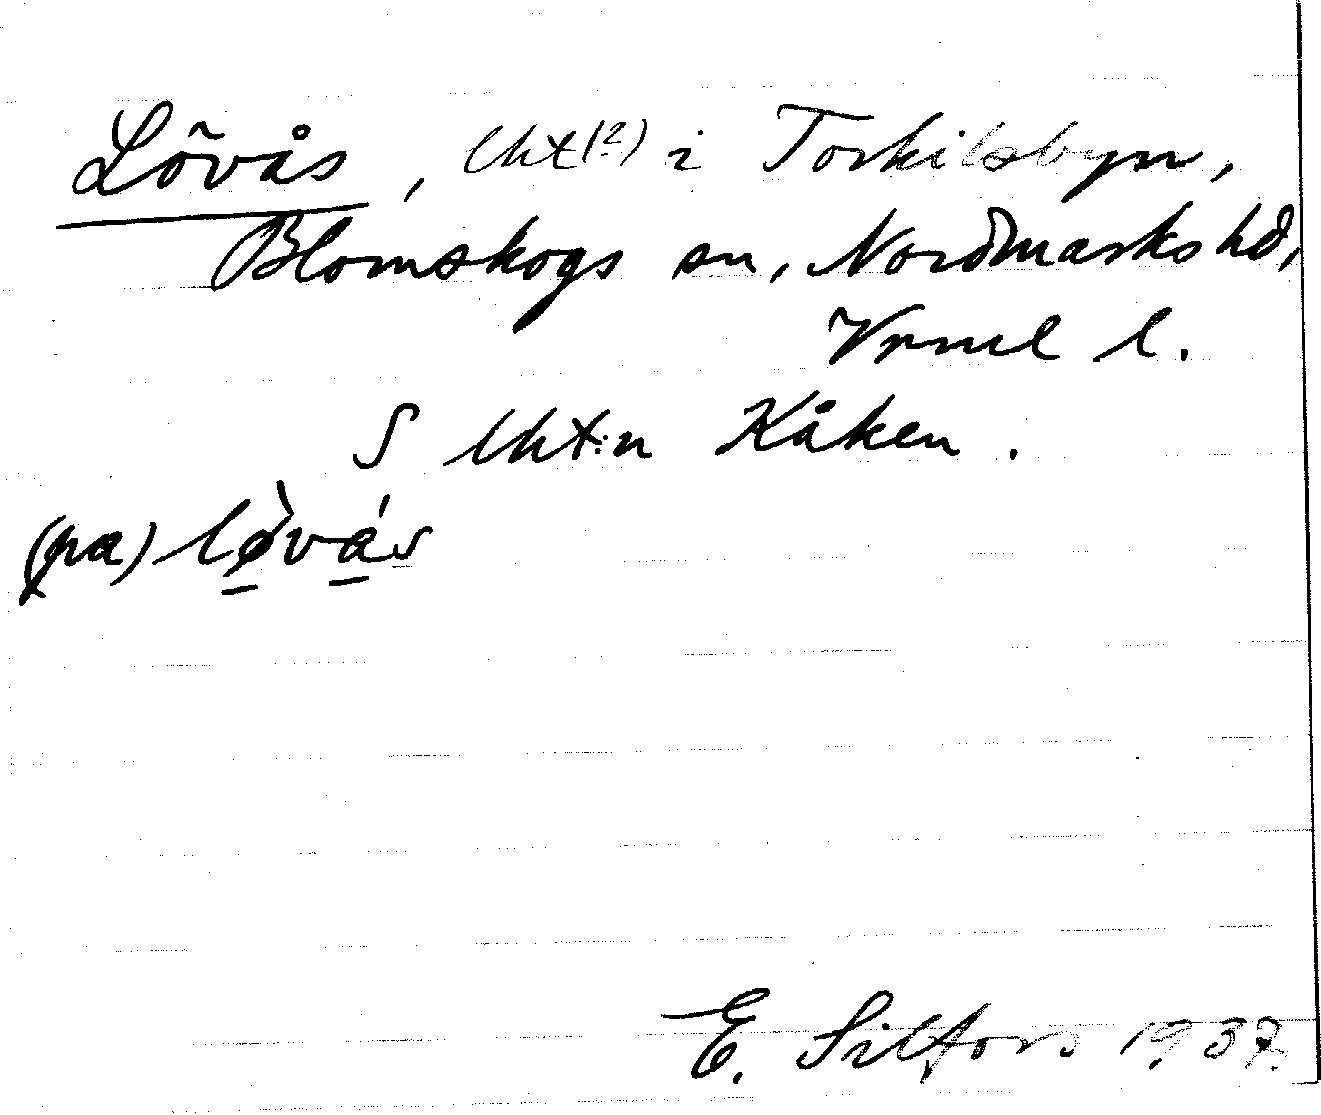 Lövås, lht(?) i Torkilsbyn,
Blomskogs sn, Nordmarks hd,
Vrml l.
S lht:n Kåken.
(pa) lø̀vás
E. Silfors 1937.